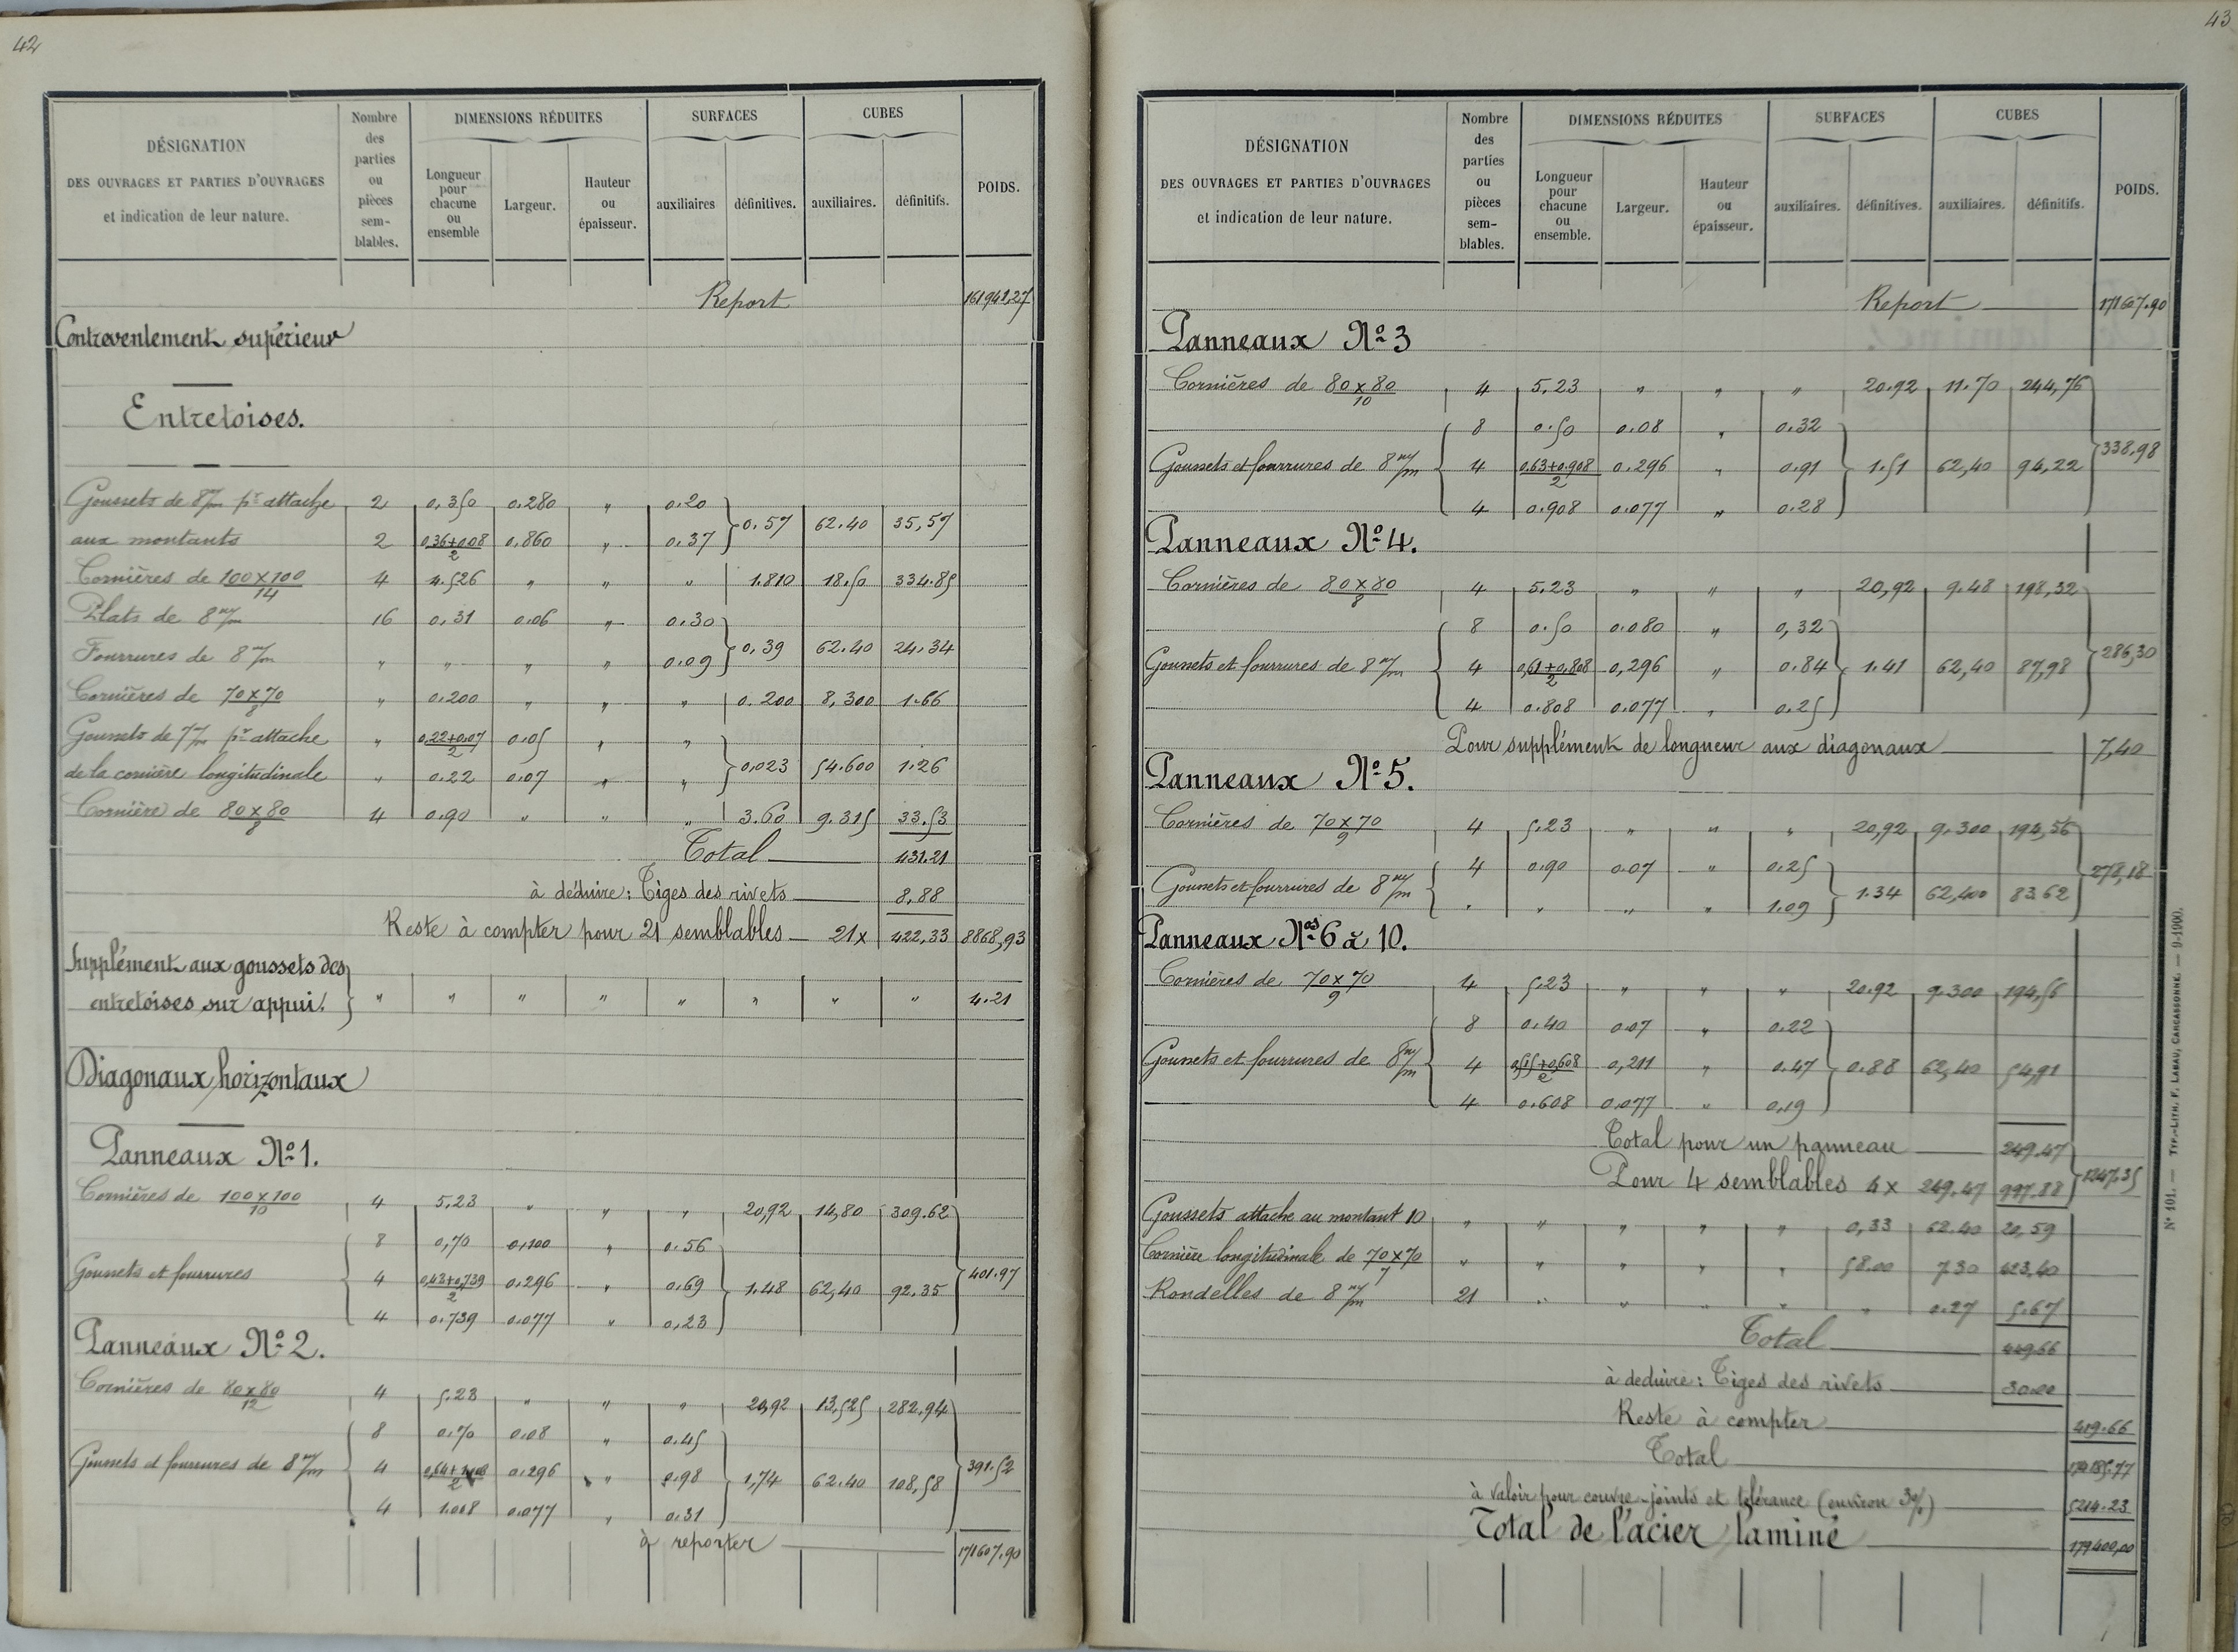 42
DÉSIGNATION
DES OUVRAGES ET PARTIES D'OUVRAGES
et indication de leur nature.
Nombre
des
parties
ou
pièces
sem-
blables.
DIMENSIONS RÉDUITES
Longueur
pour
chacune
ou
ensemble
Largeur.
Hauteur
ou
épaisseur.
SURFACES
auxiliaires
définitives.
CUBES
auxiliaires.
définitifs.
POIDS.
Report 161941,27
Contreventement supérieur
Entretoises.
Goussets de 8m/m pr attache 2 0.350 0.280 " 0.20
aux montants 2 0.36+0.08/2 0.860 " 0.37 } 0.57 62.40 35,57
Cornières de 100x100/14 4 4.526 " " " 1.810 18.50 334.85
Plats de 8m/m 16 0.31 0.06 " 0.30
Fourrures de 8m/m " " " " 0.09 } 0.39 62.40 24.34
Cornières de 70x70/8 " 0.200 " " " 0.200 8,300 1.66
Goussets de 7m/m pr attache " 0.22+0.07/2 0.05 " "
de la cornière longitudinale " 0.22 0.07 " " } 0.023 54.600 1.26
Cornière de 80x80/8 4 0.90 " " " 3.60 9.315 33.53
Total 431.21
à déduire : Tiges des rivets 8.88
Reste à compter pour 21 semblables 21x 422,33 8868,93
Supplément aux goussets des
entretoises sur appui. } " " " " " " " " 4.21
Diagonaux horizontaux
Panneaux No 1.
Cornières de 100x100/10 4 5.23 " " " 20,92 14,80 309.62
8 0,70 0,100 " 0.56
Goussets et fourrures 4 0,43+0,739/2 0.296 " 0.69 } 1.48 62,40 92.35 } 401.97
4 0.739 0.077 " 0,23
Panneaux No 2.
Cornières de 80x80/12 4 5.23 " " " 20,92 13,525 282,94
8 0.70 0.08 " 0.45
Goussets et fourrures de 8m/m 4 0.296 " 0.98 } 1,74 62.40 108,58 } 391.52
4 1.008 0.077 " 0.31
à reporter 171607.90
43
DÉSIGNATION
DES OUVRAGES ET PARTIES D'OUVRAGES
et indication de leur nature.
Nombre
des
parties
ou
pièces
sem-
blables.
DIMENSIONS RÉDUITES
Longueur
pour
chacune
ou
ensemble.
Largeur.
Hauteur
ou
épaisseur.
SURFACES
auxiliaires.
définitives.
CUBES
auxiliaires.
définitifs.
POIDS.
Report 171607.90
Panneaux No 3
Cornières de 80x80/10 4 5.23 " " " 20.92 11.70 244,76
8 0.50 0.08 " 0.32
Goussets et fourrures de 8m/m 4 0.63+0.908/2 0.296 " 0.91 } 1.51 62,40 94,22 } 338,98
4 0.908 0.077 " 0.28
Panneaux No 4.
Cornières de 80x80/8 4 5.23 " " " 20,92 9.48 198,32
8 0.50 0.080 " 0,32
Goussets et fourrures de 8m/m 4 0,61+0,808/2 0,296 " 0.84 } 1.41 62,40 87,98 } 286,30
4 0.808 0.077 " 0.25
Pour supplément de longueur aux diagonaux 7,40
Panneaux No 5.
Cornières de 70x70/9 4 5.23 " " " 20,92 9.300 194,56
4 0.90 0.07 " 0.25
Goussets et fourrures de 8m/m " " " " 1.09 } 1.34 62,400 83.62 } 278,18
Panneaux Nos 6 à 10.
Cornières de 70x70/9 4 5.23 " " " 20.92 9.300 194,56
8 0.40 0.07 " 0.22
Goussets et fourrures de 8m/m 4 0,211 " 0.47 } 0.88 62,40 54,91
4 0.608 0.077 " 0,19
Total pour un panneau 249.47
Pour 4 semblables 4x 249.47 997.88 } 1247.35
Goussets attache au montant 10 " " " " " 0,33 62.40 20,59
Cornière longitudinale de 70x70/7 " " " " " 58.00 7.30 423,40
Rondelles de 8m/m 21 " " " " " 0.27 5.67
Total 449.66
à deduire : Tiges des rivets 30.00
Reste à compter 419.66
Total 174185.77
à valoir pour couvre-joints et tolérance (environ 3%) 5214.23
Total de l'acier laminé 179400,00
No 101. — TYP.-LITH. F. LABAU, CARCASSONNE. — 9-1900.